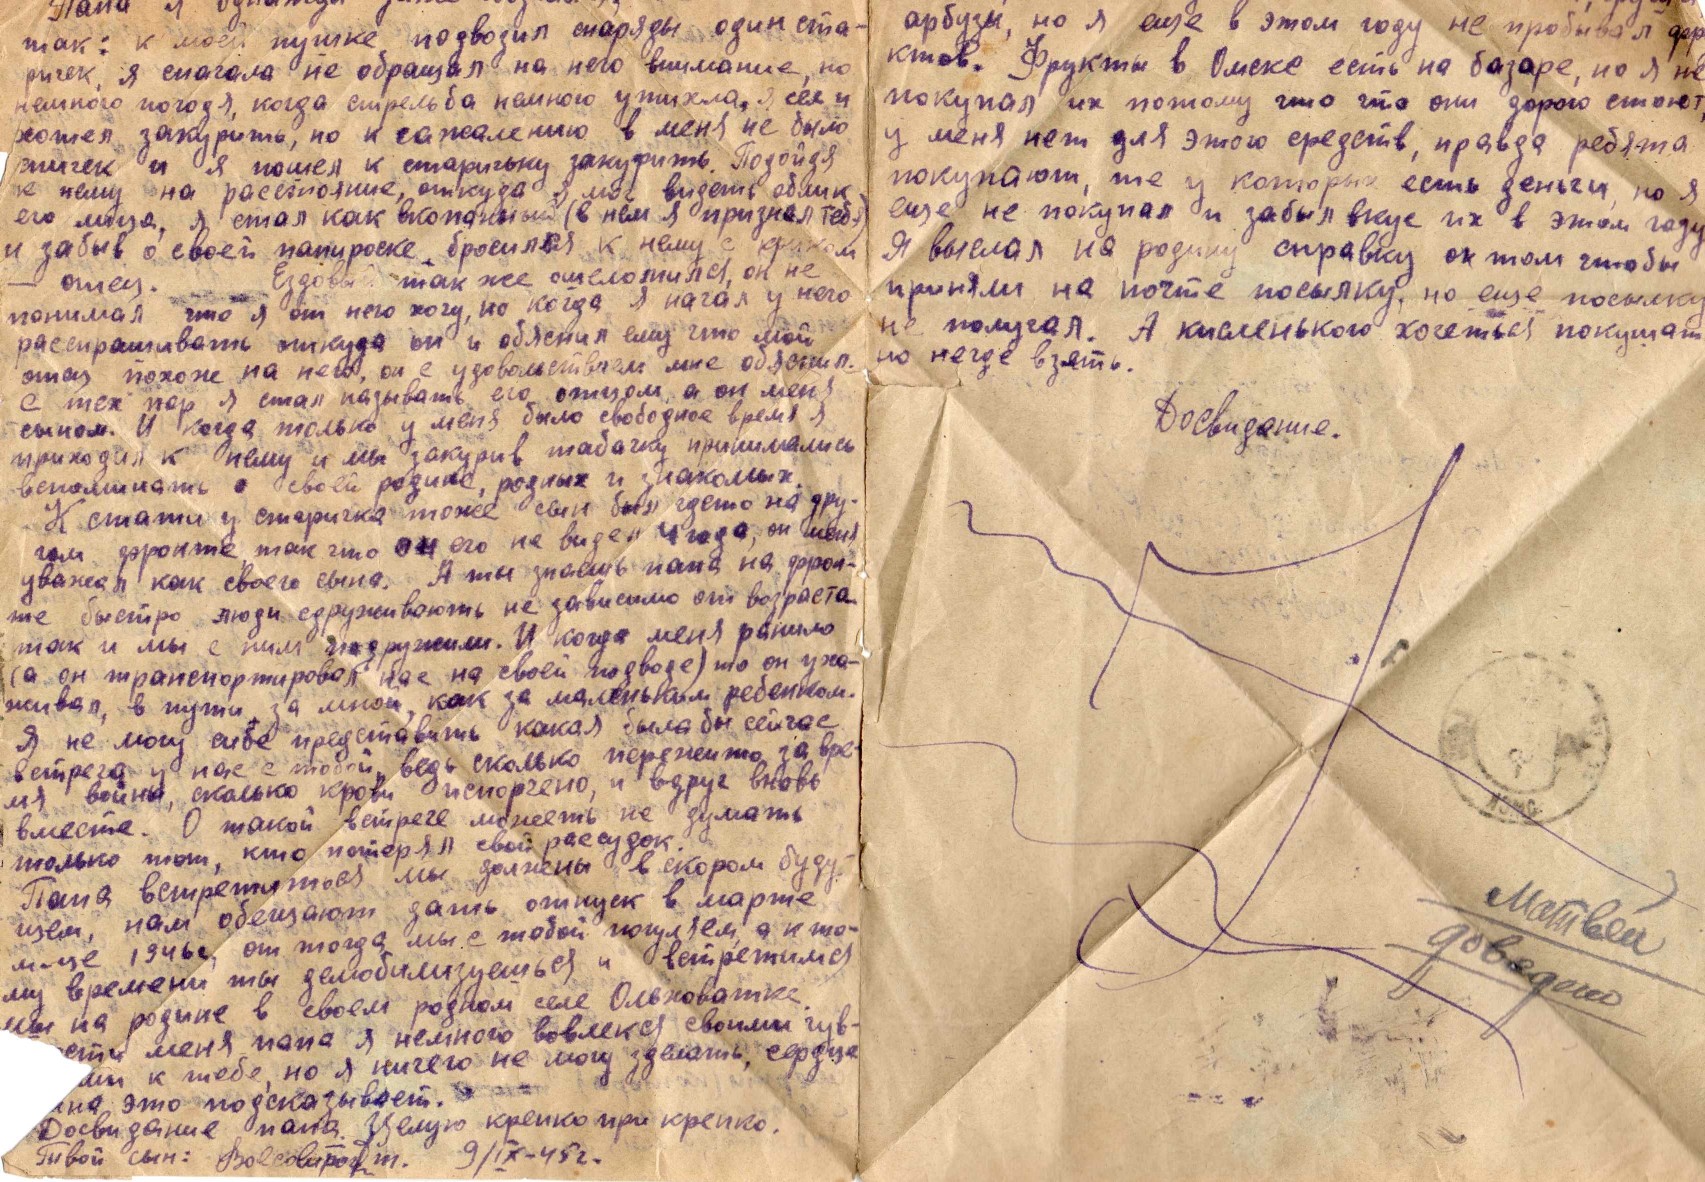 Папа я однажды
так: к моей пушке подвозил снаряды один ста-
ричек, я сначала не обращал на него внимание, но
немного погодя, когда стрельба немного утихла, я сел и
хотел закурить, но к сажелению в меня не было
спичек и я пошел к старичьку закурить. Подойдя
к нему на рассояние, откуда я мог видеть облик
его лица, я стал как вкопанный (в нем я признал тебя)
и забыв о своей папироске бросился к нему с криком
— отец. Ездовый также ошеломился, он не
понимал что я от него хочу, но когда я начал у него
расспрашивать откуда он и обяснил ему что мой
отец похож на него, он с удовольствием мне обяснил.
С тех пор я стал называть его отцом, а он меня
сыном. И когда только у меня было свободное время я
приходил к нему и мы закурив табачку принимались
вспоминать о своей родине, родных и знакомых.
К стати у старичка тоже сын был гдето на дру-
гом фронте, так что он его не видел 4 года, он меня
уважал как своего сына. А ты знаешь папа на фрон-
те быстро люди сдруживають не зависимо от возраста
так и мы с ним подружили. И когда меня ранило
(а он транспортировал нас на своей подводе) то он уха-
живал, в пути за мной, как за маленьким ребенком.
Я не могу себе представить какая была бы сейчас
встреча у нас с тобой, ведь сколько пережито за вре-
мя войны, сколько крови испорчено, и вдруг вновь
вместе. О такой встрече можеть не думать
только тот, кто потерял свой рассудок.
Папа встретиться мы должены в скором буду-
щем, нам обещают дать отпуск в марте
м-це 1946г, от тогда мы с тобой погуляем, а к то-
му времени ты демобилизуешься и встретимся
мы на родине в своем родном селе Ольховатке.
ости меня папа я немного вовлекся своими чув-
ми к тебе, но я ничего не могу зделать, сердце
мне это подсказывает.
Досвидание папа. Целую крепко при крепко.
Твой сын: 9/IX-45г.
арбузы, но я еще в этом году не пробывал фру
ктов. Фрукты в Омске есть на базаре, но я не
покупал их потому что что они дорого стоют,
у меня нет для этого средств, правда ребята
покупают, те у которых есть деньги, но я
еще не покупал и забыл вкус их в этом году
Я выслал на родину справку о том чтобы
приняли на почте посылку, но еще посылку
не получал. А кисленького хочеться покушат
но негде взять.
Досвидание.
Матвей
доведет